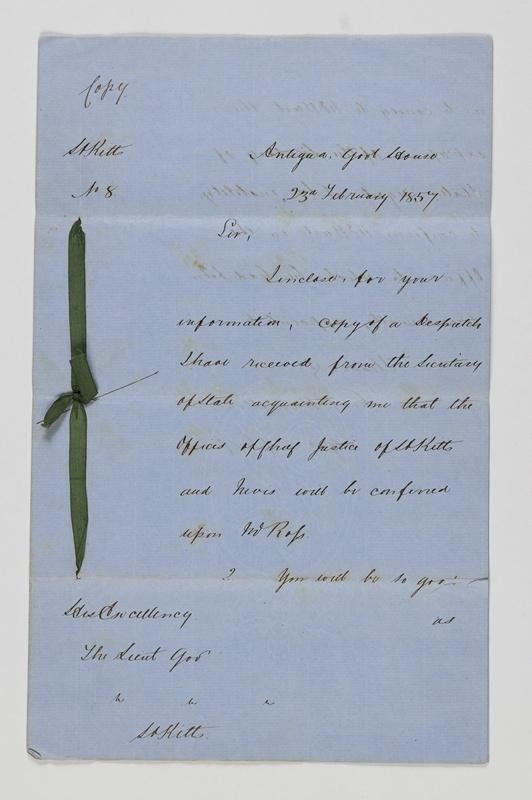 Copy
St Kitts
No 8
Antigua. Govt House
23rd February 1857
Sir,
I inclose, for your
information, copy of a Despatch
I have received from the Secretary
of State acquainting me that the
Offices of Chief Justice of St Kitts
and Nevis will be conferred
upon Mr Ross
2 You will be so good
as
His Excellency
The Lieut Govr
" " "
St Kitts.